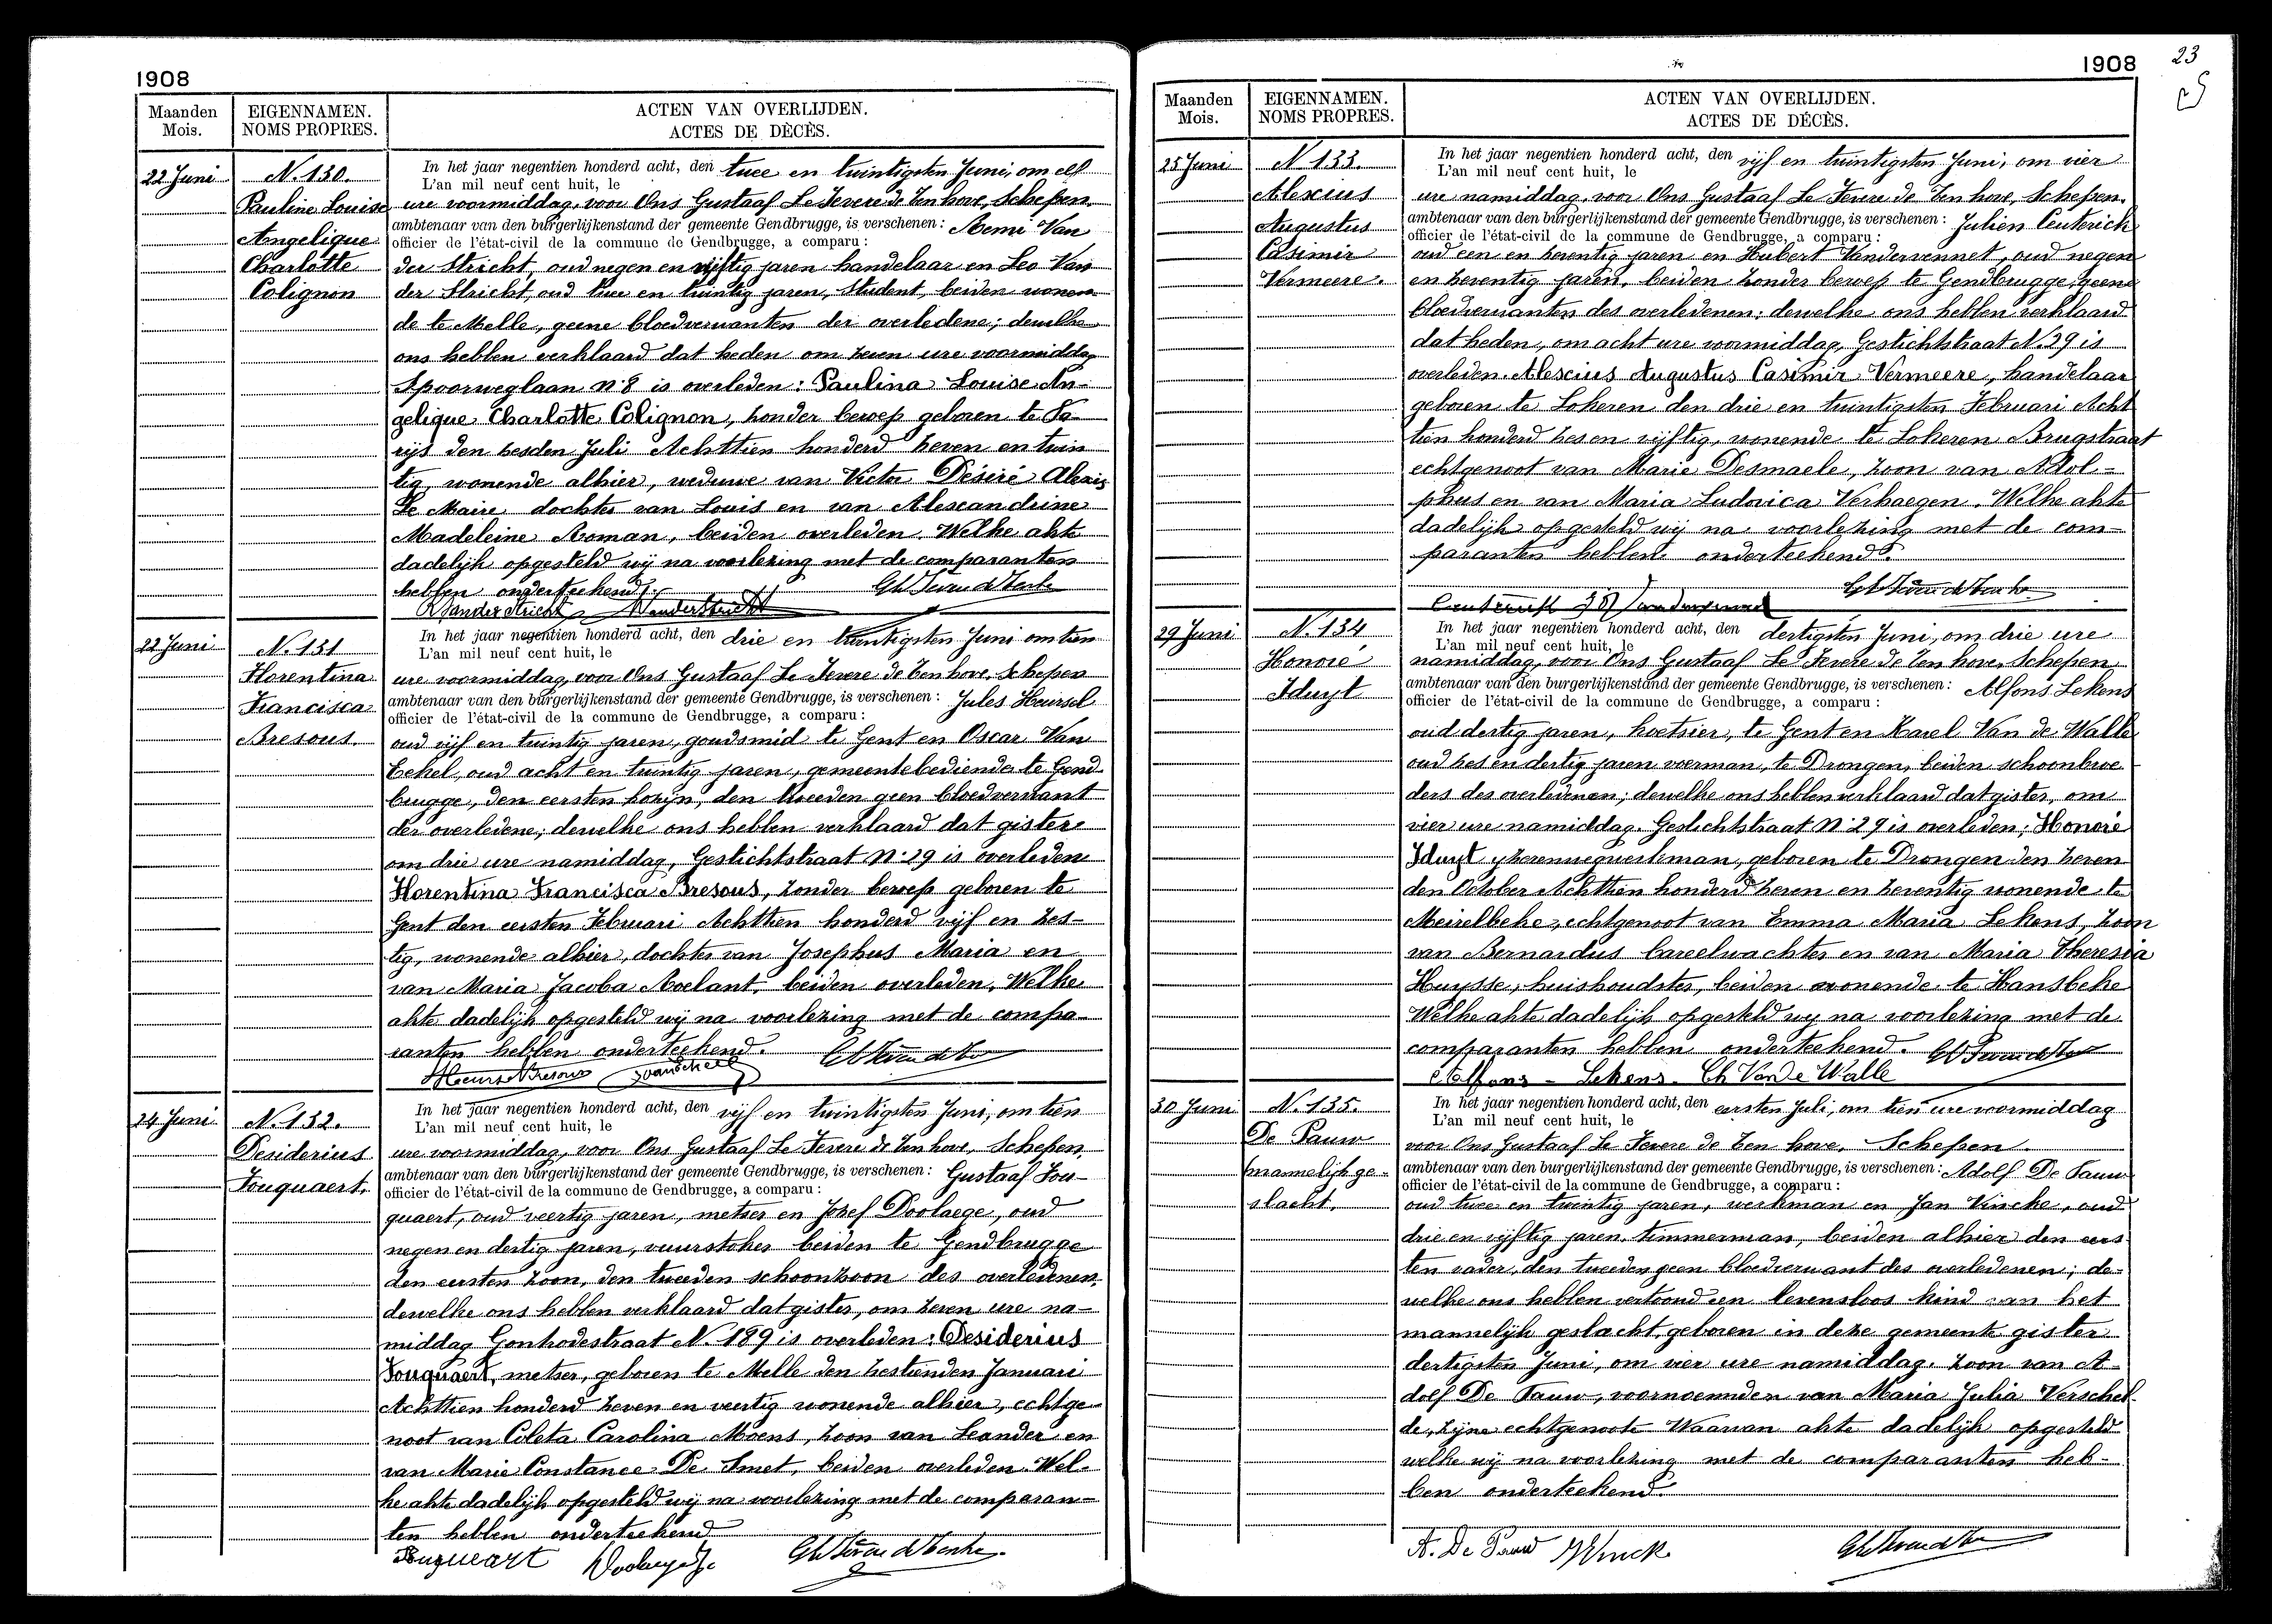 1908
Maanden
Mois.
EIGENNAMEN.
NOMS PROPRES.
ACTEN VAN OVERLIJDEN.
ACTES DE DÉCÈS.
22 Juni
N. 130.
Pauline Louise
Angelique
Charlotte
Colignon
In het jaar negentien honderd acht, den twee en twintigsten Juni, om elf
L'an mil neuf cent huit, le
ure voormiddag, voor Ons Gustaaf Le Fevere de Ten hove, Schepen,
ambtenaar van den burgerlijkenstand der gemeente Gendbrugge, is verschenen: Remi Van
officier de l'état-civil de la commune de Gendbrugge, a comparu:
der Stricht, oud negen en vijftig jaren handelaar en Leo Van
der Stricht, oud twee en twintig jaren, Student, beiden wonen-
de te Melle, geene bloedverwanten der overledene; dewelke
ons hebben verklaard dat heden om zeven ure voormiddag
Spoorweglaan N. 8 is overleden: Paulina Louise An-
gelique Charlotte Colignon, zonder beroep geboren te Pa-
rijs den zesden Juli Achttien honderd zeven en twin
tig, wonende alhier, weduwe van Victor Désiré Alexis
Le Maire dochter van Louis en van Alexandrine
Madeleine Roman, beiden overleden. Welke akte
dadelijk opgesteld wij na voorlezing met de comparanten
hebben onderteekend.
R Vanderstricht Vanderstricht
22 Juni
N. 131
Florentina
Francisca
Bresous.
In het jaar negentien honderd acht, den drie en twintigsten Juni om tien
L'an mil neuf cent huit, le
ure voormiddag, voor Ons Gustaaf Le Fevere de Ten hove, Schepen
ambtenaar van den burgerlijkenstand der gemeente Gendbrugge, is verschenen: Jules Heursel
officier de l'état-civil de la commune de Gendbrugge, a comparu:
oud vijf en twintig jaren, goudsmid te Gent en Oscar Van
Eekel, oud acht en twintig jaren, gemeentebediende te Gend-
brugge, den eersten kozijn, den tweeden geen bloedverwant
der overledene; dewelke ons hebben verklaard dat gister
om drie ure namiddag, Gestichtstraat N. 29 is overleden
Florentina Francisca Bresous, zonder beroep geboren te
Gent den eersten Februari Achttien honderd vijf en zes-
tig, wonende alhier, dochter van Josephus Maria en
van Maria Jacoba Roelant, beiden overleden. Welke
akte dadelijk opgesteld wij na voorlezing met de compa-
ranten hebben onderteekend.
24 Juni
N. 132.
Desiderius
Fouquaert.
In het jaar negentien honderd acht, den vijf en twintigsten Juni, om tien
L'an mil neuf cent huit, le
ure voormiddag, voor Ons Gustaaf Le Fevere de Ten hove, Schepen,
ambtenaar van den burgerlijkenstand der gemeente Gendbrugge, is verschenen: Gustaaf Fou-
officier de l'état-civil de la commune de Gendbrugge, a comparu:
quaert, oud veertig jaren, metser en Jozef Doolaege, oud
negen en dertig jaren, vuurstoker beiden te Gendbrugge
den eersten zoon, den tweeden schoonzoon des overledenen,
dewelke ons hebben verklaard dat gister, om zeven ure na-
middag Gonkodestraat N. 189 is overleden: Desiderius
Fouquaert, metser, geboren te Melle den zestienden Januari
Achttien honderd zeven en veertig wonende alhier, echtge-
noot van Coleta Carolina Moens, zoon van Leander en
van Marie Constance De Smet, beiden overleden. Wel-
ke akte dadelijk opgesteld wij na voorlezing met de comparan-
ten hebben onderteekend
Fouqueart
1908
23
Maanden
Mois.
EIGENNAMEN.
NOMS PROPRES.
ACTEN VAN OVERLIJDEN.
ACTES DE DÉCÈS.
25 Juni
N 133.
Alexius
Augustus
Casimir
Vermeere.
In het jaar negentien honderd acht, den vijf en twintigsten Juni, om vier
L'an mil neuf cent huit, le
ure namiddag, voor Ons Gustaaf Le Fevere de Ten hove, Schepen,
ambtenaar van den burgerlijkenstand der gemeente Gendbrugge, is verschenen: Julien Ceuterick
officier de l'état-civil de la commune de Gendbrugge, a comparu:
oud een en zeventig jaren en Hubert Vandervennet, oud negen
en zeventig jaren, beiden zonder beroep te Gendbrugge, geene
bloedverwanten des overledenen; dewelke ons hebben verklaard
dat heden, om acht ure voormiddag, Gestichtstraat N. 29 is
overleden Alexius Augustus Casimir Vermeere, handelaar
geboren te Lokeren den drie en twintigsten Februari Acht
tien honderd zes en vijftig, wonende te Lokeren Brugstraat
echtgenoot van Marie Desmaele, zoon van Adol-
phus en van Maria Ludovica Verhaegen. Welke akte
dadelijk opgesteld wij na voorlezing met de com-
paranten hebben onderteekend.
29 Juni
N. 134
Honoré
Iduyt
In het jaar negentien honderd acht, den dertigsten Juni, om drie ure
L'an mil neuf cent huit, le
namiddag, voor Ons Gustaaf Le Fevere de Ten hove, Schepen
ambtenaar van den burgerlijkenstand der gemeente Gendbrugge, is verschenen: Alfons Lekens
officier de l'état-civil de la commune de Gendbrugge, a comparu:
oud dertig jaren, koetsier, te Gent en Karel Van de Walle
oud zes en dertig jaren voerman, te Drongen, beiden schoonbroe
ders des overledenen; dewelke ons hebben verklaard dat gister, om
vier ure namiddag. Gestichtstraat N. 29 is overleden; Honoré
Iduyt yzerenwegwerkman, geboren te Drongen den zeven
den October Achttien honderd zeven en zeventig wonende te
Meirelbeke, echtgenoot van Emma Maria Lekens, zoon
van Bernardus bareelwachter en van Maria Theresia
Huysse, huishoudster, beiden wonende te Hansbeke
Welke akte dadelijk opgesteld wij na voorlezing met de
comparanten hebben onderteekend.
Alfons - Lekens. Ch Van de Walle
30 Juni
N. 135.
De Pauw
mannelijk ge-
slacht.
In het jaar negentien honderd acht, den eersten Juli, om tien ure voormiddag
L'an mil neuf cent huit, le
voor Ons Gustaaf Le Fevere de Ten hove, Schepen.
ambtenaar van den burgerlijkenstand der gemeente Gendbrugge, is verschenen: Adolf De Pauw
officier de l'état-civil de la commune de Gendbrugge, a comparu:
oud twee en twintig jaren, werkman en Jan Vincke, oud
drie en vijftig jaren, timmerman, beiden alhier den eers
ten vader, den tweeden geen bloedverwant des overledenen; de-
welke ons hebben vertoond een levensloos kind van het
mannelijk geslacht, geboren in deze gemeente gister
dertigsten Juni, om vier ure namiddag, zoon van A-
dolf De Pauw, voornoemden van Maria Julia Verschel-
de, zijne echtgenoote Waarvan akte dadelijk opgesteld
welke wij na voorlezing met de comparanten heb-
ben onderteekend.
A. De Pauw